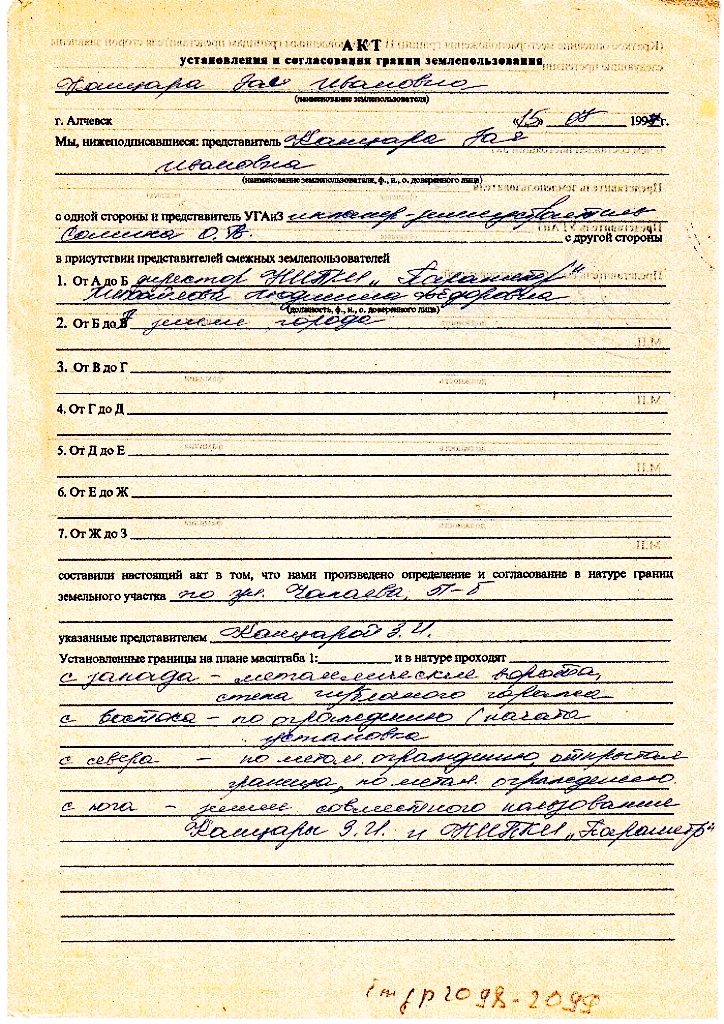 АКТ
установления и согласования границ землепользования
Канцара Зая Ивановна
(наименование землепользователя)
г. Алчевск «15» 07 199 г.
Мы, нижеподписавшиеся: представитель Канцара Зая
Ивановна
(наименование землепользователя, ф., и., о. доверенного лица)
с одной стороны и представитель УГАиЗ инженер-землеустроитель
О.В. с другой стороны
в присутствии представителей смежных землепользователей
1. От А до Б директор НИПКИ „Параметр"
Михайлова Людмила Фёдоровна
(должность, ф., и., о. доверенного лица)
2. От Б до земли города
3. От В до Г
4. От Г до Д
5. От Д до Е
6. От Е до Ж
7. От Ж до З
составили настоящий акт в том, что нами произведено определение и согласование в натуре границ
земельного участка по ул. Чапаева,
указанные представителем Канцарой З.И.
Установленные границы на плане масштаба 1: и в натуре проходят
с запада – металлические ворота,
стена кирпичного гаража
с востока – по ограждению (начата
установка
с севера – по метал. ограждению, открытая
граница, по метал. ограждению.
с юга – земли совместного пользования
Канцары З.И. и НИПКИ „Параметр"
imgp2098-2099